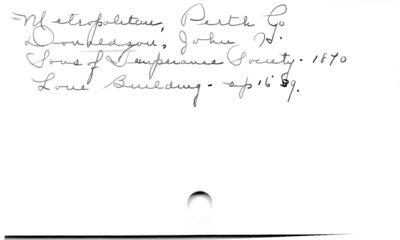 =Metropolitan, Perth Co
Donaldson, John H.
Sons of Temperance Society. 1870
Love Building. ap 16 89.